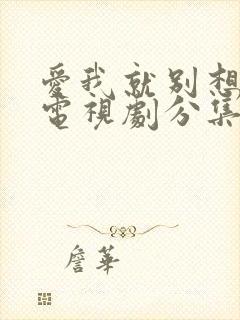 愛我就別想
電視劇分集
詹華